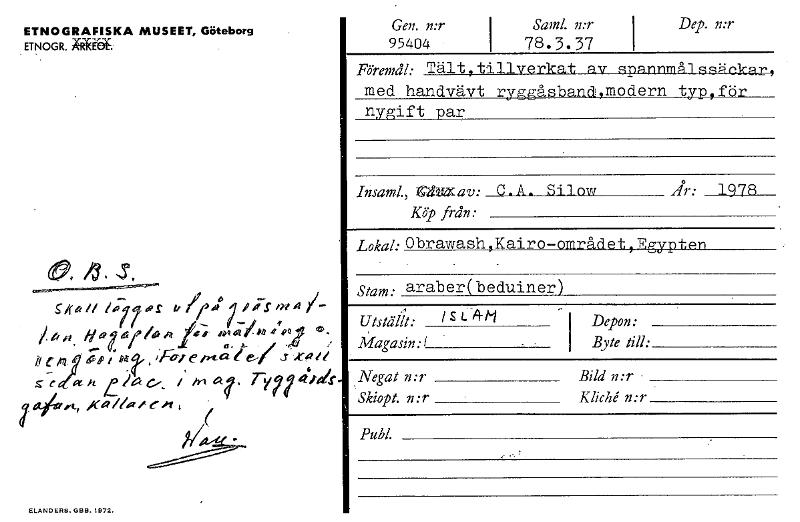 ETNOGRAFISKA MUSEET, Göteborg
ETNOGR. ARKEOL.
O. B. S.
Skall läggas ut på gräsmat-
tan Hagaplan för mätning o.
rengöring. Föremålet skall
sedan plac. i mag. Tyggårds-
gatan, källaren.
ELANDERS, GBB, 1972.
Gen. n:r Saml. n:r Dep. n:r
95404 78.3.37
Föremål: Tält,tillverkat av spannmålssäckar,
med handvävt ryggåsband,modern typ,för
nygift par
Insaml., Gåva av: C.A. Silow År: 1978
Köp från:
Lokal: Obrawash,Kairo-området,Egypten
Stam: araber(beduiner)
Utställt: ISLAM Depon:
Magasin: Byte till:
Negat n:r Bild n:r
Skiopt. n:r Kliché n:r
Publ.